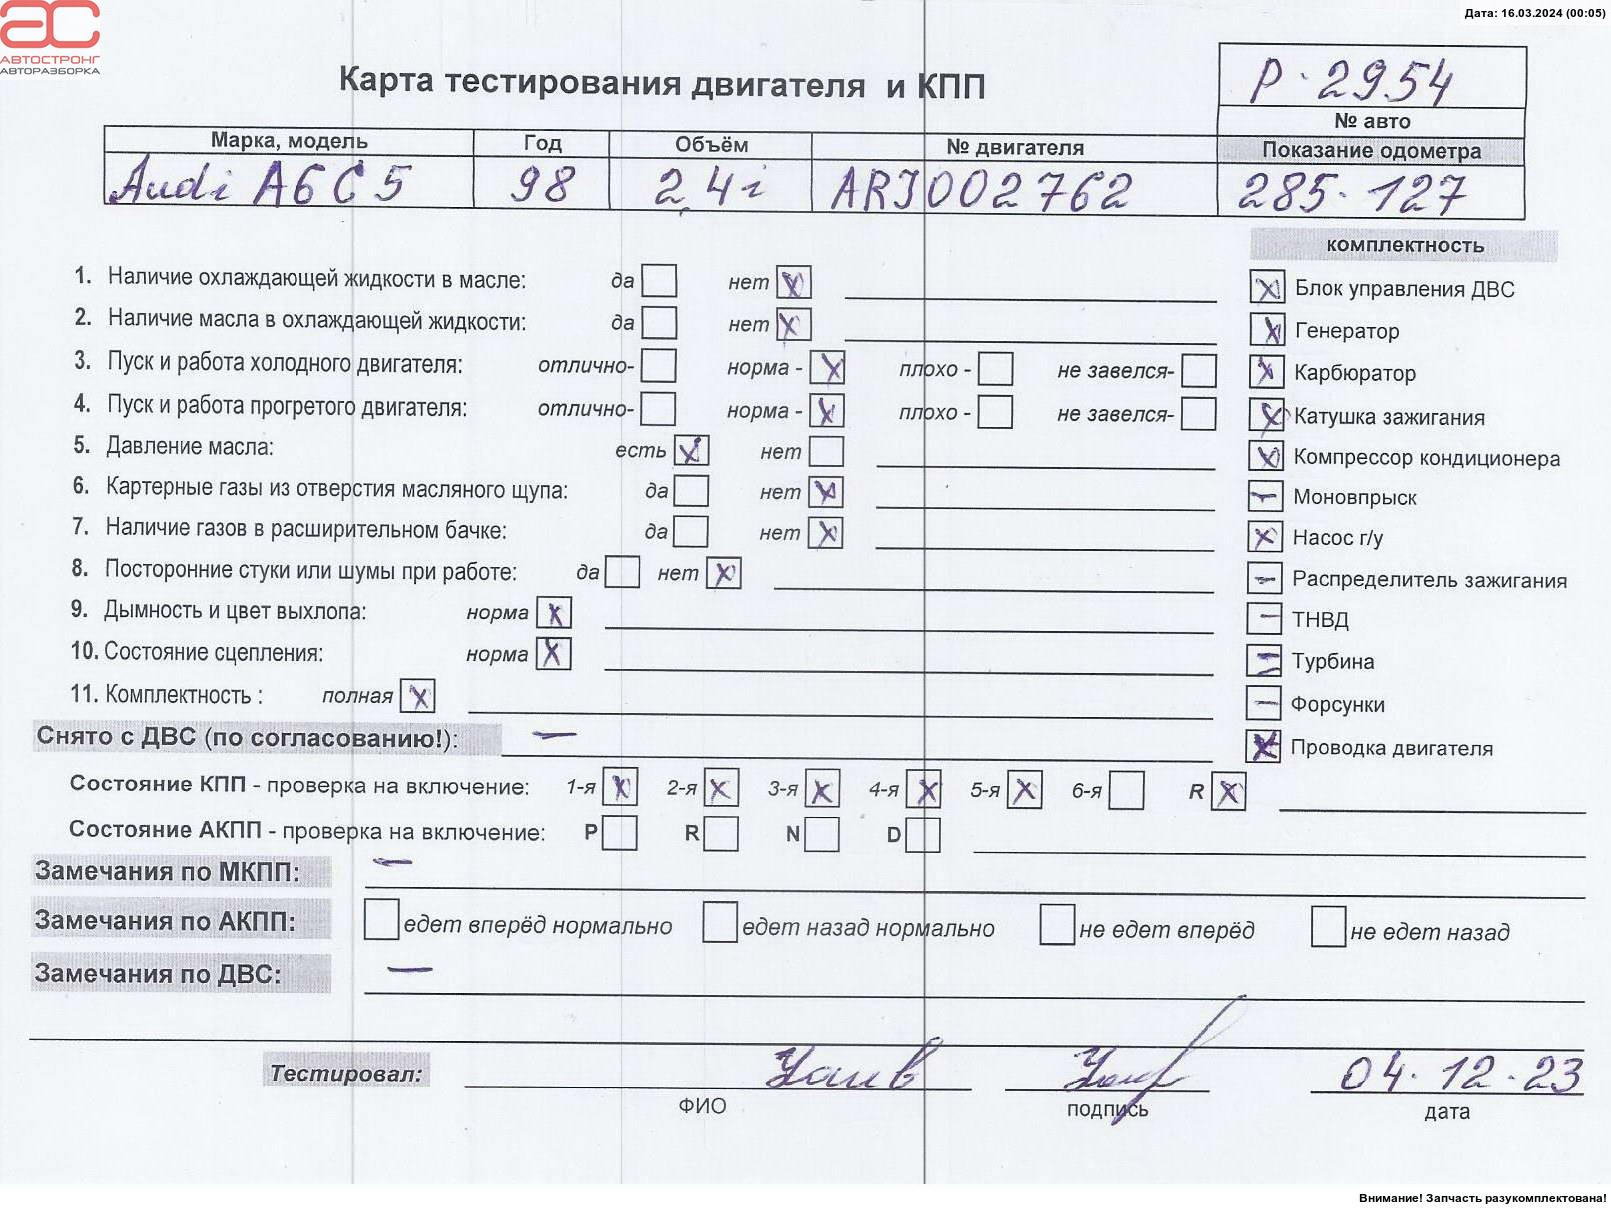 Дата: 16.03.2024 (00:05)
АВТОСТРОНГ
АВТОРАЗБОРКА
Карта тестирования двигателя и КПП
Р·2954
№ авто
Марка, модель Год Объём № двигателя Показание одометра
Audi A6C5 98 2,4i ARJ002762 285·127
комплектность
1. Наличие охлаждающей жидкости в масле: да нет X
Блок управления ДВС
2. Наличие масла в охлаждающей жидкости: да нет X
Генератор
3. Пуск и работа холодного двигателя: отлично- норма - X плохо - не завелся-
Карбюратор
4. Пуск и работа прогретого двигателя: отлично- норма - X плохо - не завелся-
Катушка зажигания
5. Давление масла: есть X нет
Компрессор кондиционера
6. Картерные газы из отверстия масляного щупа: да нет X
Моновпрыск
7. Наличие газов в расширительном бачке: да нет X
Насос г/у
8. Посторонние стуки или шумы при работе: да нет X
Распределитель зажигания
9. Дымность и цвет выхлопа: норма X
ТНВД
10. Состояние сцепления: норма X
Турбина
11. Комплектность : полная X
Форсунки
Снято с ДВС (по согласованию!): —
Проводка двигателя
Состояние КПП - проверка на включение: 1-я X 2-я X 3-я X 4-я X 5-я X 6-я R X
Состояние АКПП - проверка на включение: P R N D
Замечания по МКПП: —
Замечания по АКПП: едет вперёд нормально едет назад нормально не едет вперёд не едет назад
Замечания по ДВС: —
Тестировал: 04.12.23
ФИО подпись дата
Внимание! Запчасть разукомплектована!